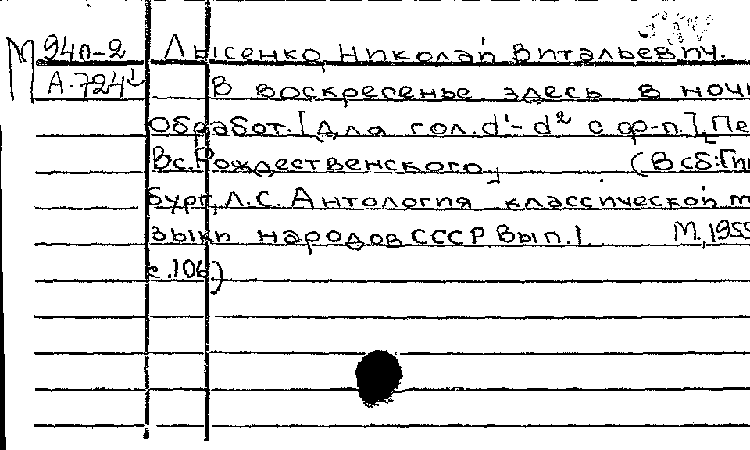 М 94п-2 Лысенко, Николай Витальевич.
А.724¹ В воскресенье здесь в ночи
Обработ. [Для гол. d¹-d² с ф-п.]. Пе
Вс. Рождественского, (В сб: Ги
бург, Л.С. Антология классической м
зыки народов СССР Вып. 1 М., 195
с. 106.)